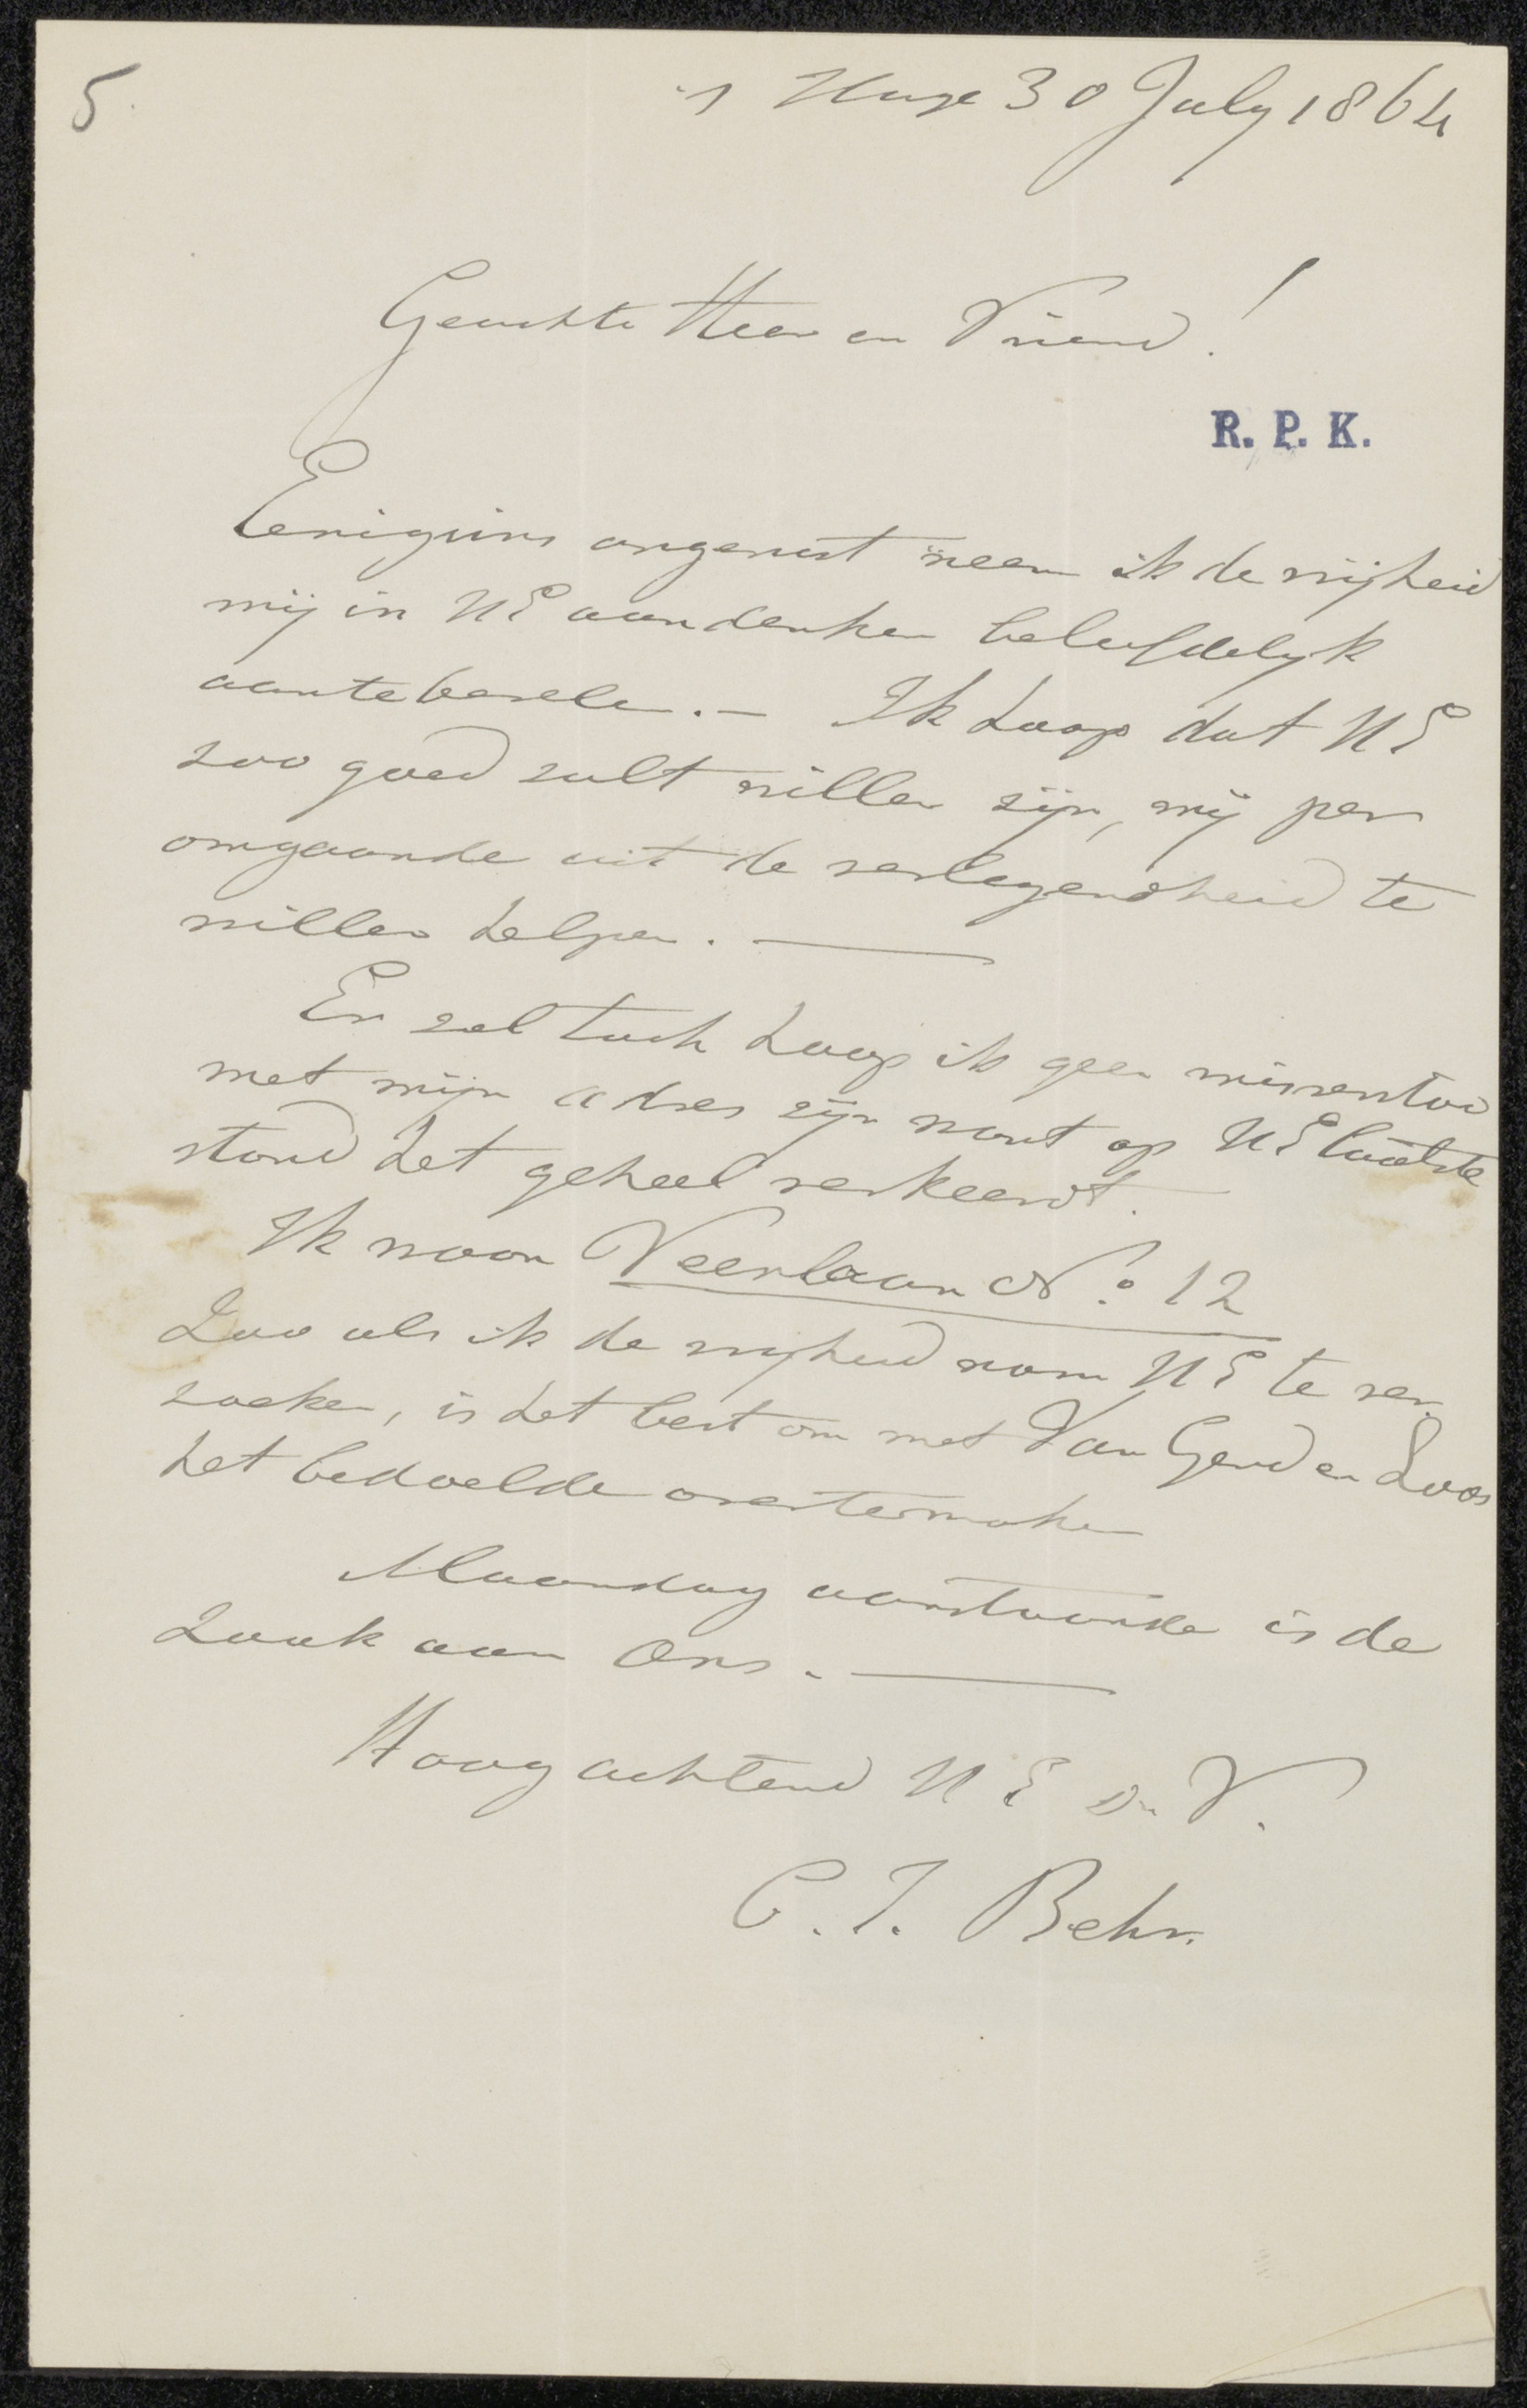 5.
's Hage 30 July 1864
Geachte Heer en Vriend!
R. P. K.
Eenigzins ongerust neem ik de vrijheid
mij in UE aandenken beleefdelyk
aantebevelen. – Ik hoop dat UE
zoo goed zult willen zijn, mij per
omgaande uit de verlegendheid te
willen helpen. —
Er zal toch hoop ik geen misverstand
met mijn adres zijn want op UE laatste
stond het geheel verkeerdt.
Ik woon Veerlaan No. 12
Zoo als ik de vryheid nam UE te ver
zoeken, is het best om met Van Gend en Loos
het bedoelde overtemaken
Maandag aanstaande is de
zaak aan Ons. —
Hoogachtend UE Dr V.
C. J. Behr.